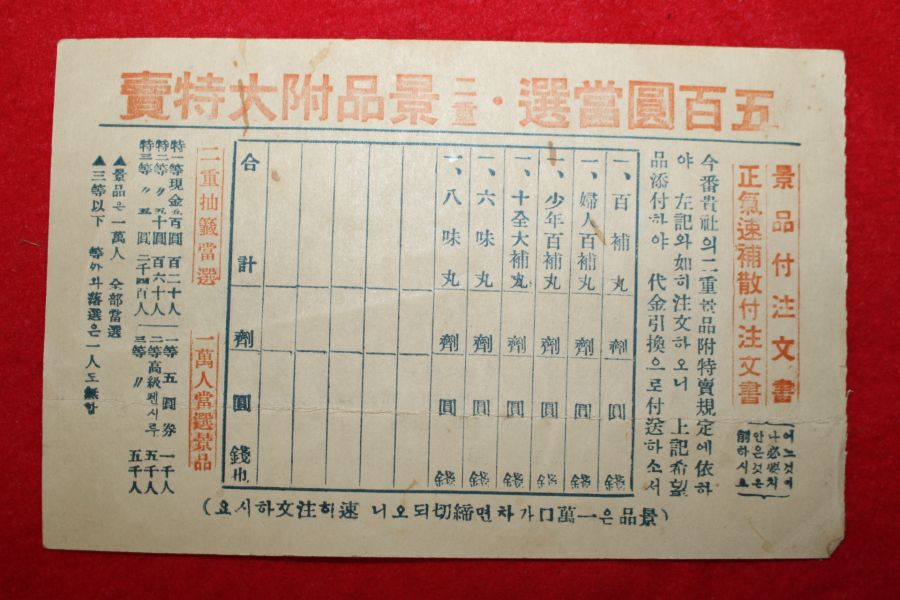 五百圓當選・二重景品附大特賣
景品付注文書
正氣速補散付注文書
어느것이
나必要치
안은것은
削하시요
今番貴社의二重景品附特賣規定에依하
야 左記와如히注文하오니 上記希望
品添付하야 代金引換으로付送하소서
一、百補丸 劑 圓 錢
一、婦人百補丸 劑 圓 錢
一、少年百補丸 劑 圓 錢
一、十全大補丸 劑 圓 錢
一、六味丸 劑 圓 錢
一、八味丸 劑 圓 錢
合計 劑 圓 錢也
二重抽籤當選 一萬人當選景品
特一等現金五百圓 百二十人 一等五圓券 一千人
特二等〃五十圓 百六十人 二等高級펜시루 五千人
特三等〃五圓 二千四百人 三等〃 五千人
▲景品은一萬人 全部當選
▲三等以下 等外와落選은一人도無함
(景品은一萬口가차면締切되오니 速히注文하시요)